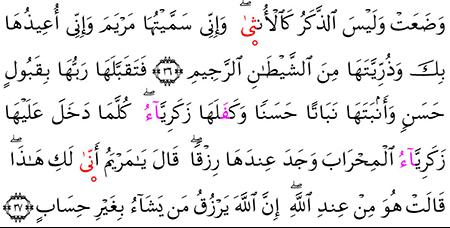 وَضَعَتْ وَلَيْسَ ٱلذَّكَرُ كَٱلْأُنثىٰۖ وَإِنِّي سَمَّيْتُهَا مَرْيَمَ وَإِنِّي أُعِيذُهَا
بِكَ وَذُرِّيَّتَهَا مِنَ ٱلشَّيْطَٰنِ ٱلرَّجِيمِ ﴿٣٦﴾ فَتَقَبَّلَهَا رَبُّهَا بِقَبُولٍ
حَسَنٖ وَأَنۢبَتَهَا نَبَاتًا حَسَنٗا وَكَفَلَهَا زَكَرِيَّآءُۖ كُلَّمَا دَخَلَ عَلَيْهَا
زَكَرِيَّآءُ ٱلْمِحْرَابَ وَجَدَ عِندَهَا رِزْقٗاۖ قَالَ يَٰمَرْيَمُ أَنّىٰ لَكِ هَٰذَاۖ
قَالَتْ هُوَ مِنْ عِندِ ٱللَّهِۖ إِنَّ ٱللَّهَ يَرْزُقُ مَن يَشَآءُ بِغَيْرِ حِسَابٍ ﴿٣٧﴾